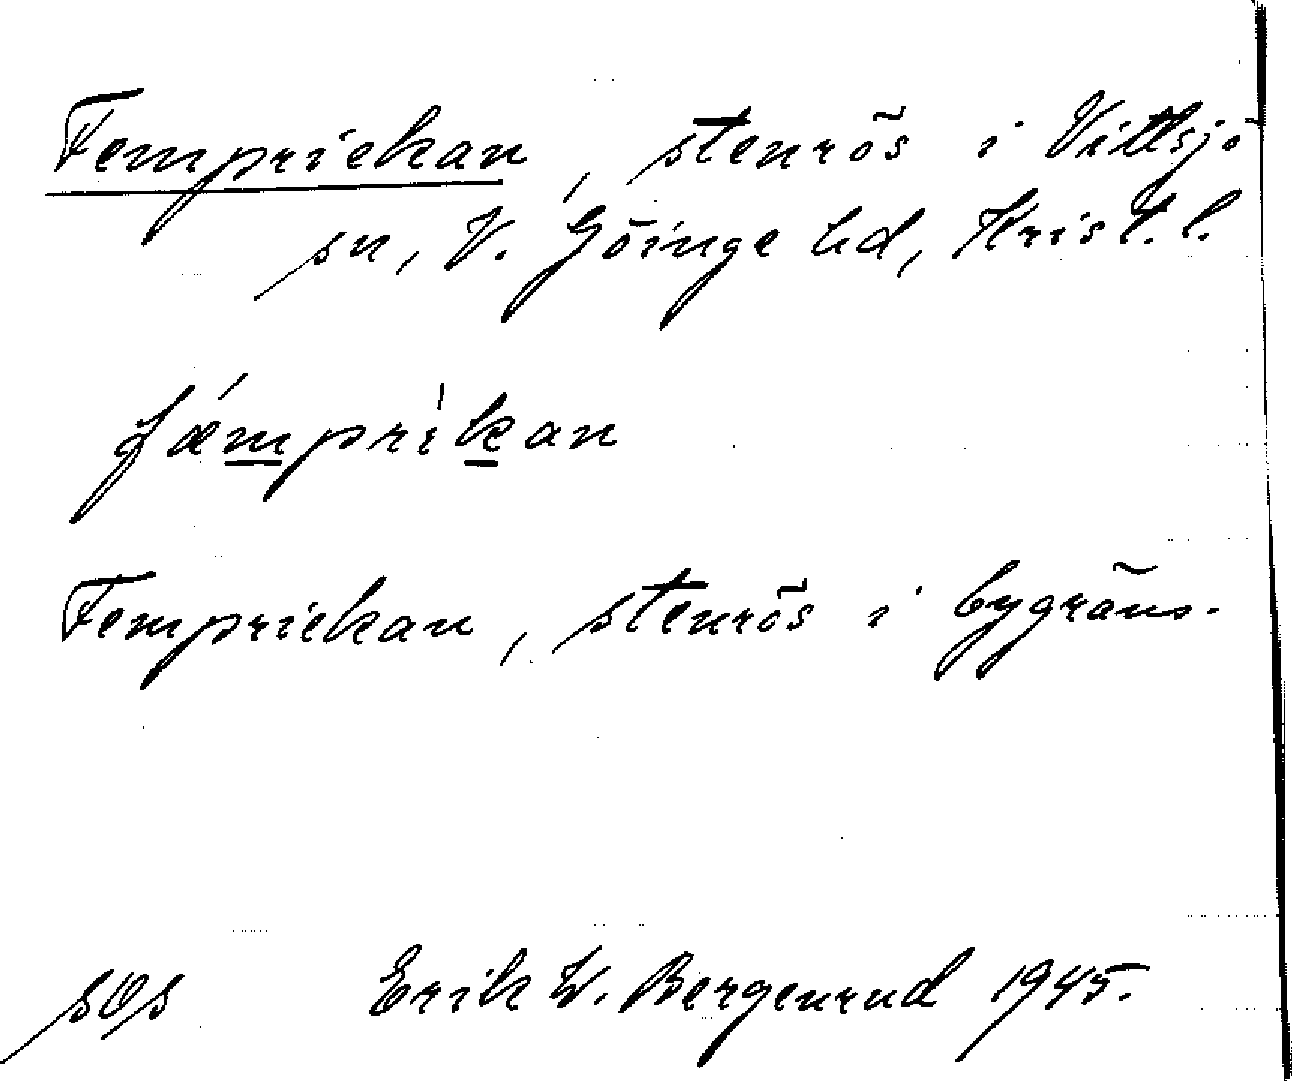 Femprickan, stenrös i Vittsjö
sn, V. Göinge hd, Krist. l.
fæ´mprìkan
Femprickan, stenrös i bygräns.
Erik W. Bergenrud 1945.